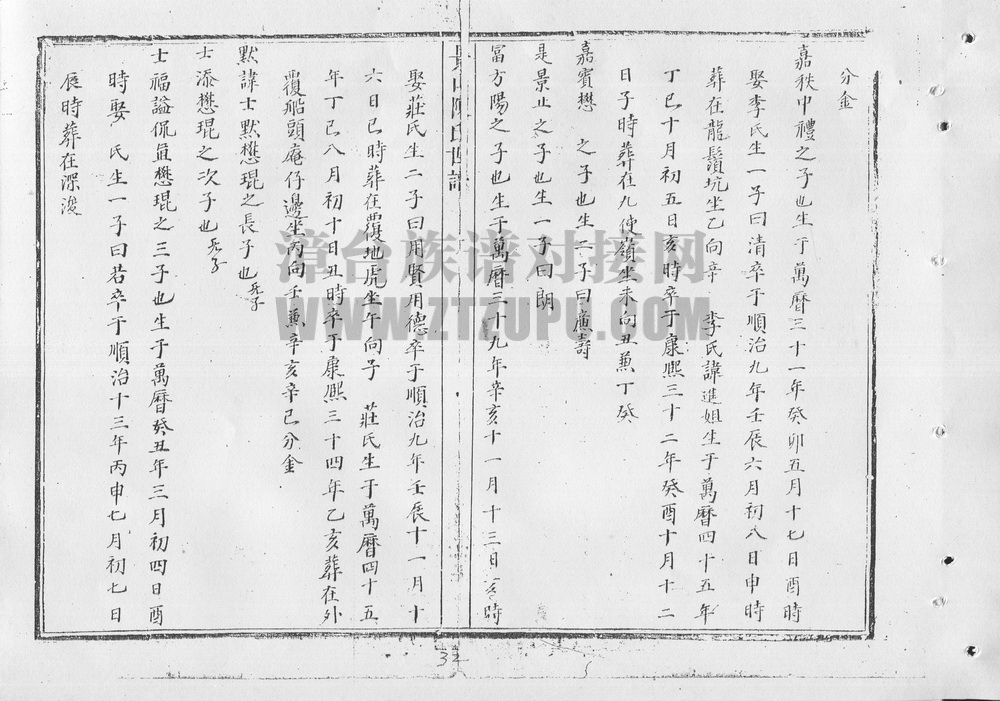 分金
嘉秩中禮之子也生于萬曆三十一年癸卯五月十七日酉時
娶李氏生一子曰清卒于順治九年壬辰六月初八日申時
葬在龍鬚坑坐乙向辛 李氏諱進姐生于萬曆四十五年
丁巳十月初五日亥時卒于康熙三十二年癸酉十月十二
日子時葬在九使嶺坐未向丑兼丁癸
嘉賓懋 之子也生二子曰廣壽
是景止之子也生一子曰朗
冨方陽之子也生于萬曆三十九年辛亥十一月十三日亥時
陳氏世譜
娶莊氏生二子曰用賢用德卒于順治九年壬辰十一月十
六日巳時葬在覆地虎坐午向子 莊氏生于萬曆四十五
年丁巳八月初十日丑時卒于康熙三十四年乙亥葬在外
覆船頭庵仔邊坐丙向壬兼辛亥辛巳分金
默諱士默懋琨之長子也 无子
士添懋琨之次子也 无子
士福謚侃直懋琨之三子也生于萬曆癸丑年三月初四日酉
時娶 氏生一子曰若卒于順治十三年丙申七月初七日
辰時葬在深浚
32
漳台族谱对接网
WWW.ZTZUPU.COM